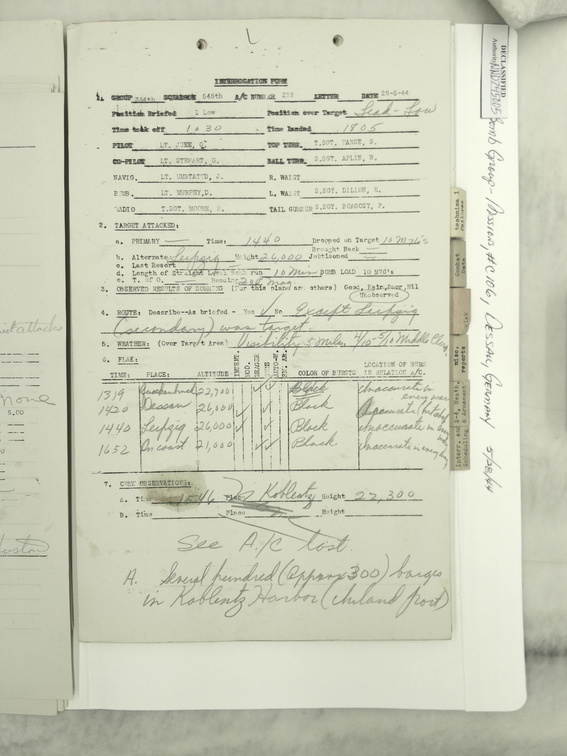 INTERROGATION FORM
1. GROUP 384th SQUADRON 546th A/C NUMBER LETTER DATE 28-5-44
Position Briefed 1 Low Position over Target Lead - Low
Time took off 1030 Time landed 1805
PILOT LT. JUNE, TOP TURR. T.SGT.
CO-PILOT LT. STEWART, G. BALL TURR. S.SGT. APLIN, W.
NAVIG. LT. UMSTATED, J. R. WAIST
BOMB. LT. MURPHY, D. L. WAIST S.SGT. DILLON, H.
RADIO T.SGT. MOORE, TAIL GUNNER S.SGT.
2. TARGET ATTACKED:
a. PRIMARY — Time: 1440 Dropped on Target 10 M47's
Brought Back —
b. Alternate Leipzig Height 26,000 Jettisoned —
c. Last Resort —
d. Length of Straight Level Bomb run 10 Min BOMB LOAD 10 M47's
e. T. O. Heading 200 Mag
3. OBSERVED RESULTS OF BOMBING (For this plane and others) Good, Fair, Poor, Nil
(Unobserved)
4. ROUTE: Describe--As briefed - Yes ✓ No Except Leipzig
(secondary) was target
5. WEATHER: (Over Target Area) Visibility 5 miles 4/10-5/10 Middle Clouds
6. FLAK:
TIME: PLACE: ALTITUDE INTENSE MOD. MEAGER COLOR OF BURSTS LOCATION OF BURSTS IN RELATION A/C.
1319 22,700 Black Inaccurate in every way
1420 Dessau 26,000 Black
1440 Leipzig 26,000 Black Inaccurate in every way
1652 On coast 21,000 Black Inaccurate in every way
7. OBSERVATIONS:
A. Time 1546 Place Koblentz Height 22,300
B. Time Place Height
See A/C lost.
A. Several hundred (approx 300) barges
in Koblentz Harbor (inland port)
DECLASSIFIED
Authority NND745005
Bomb Group - Mission, #C 106, Dessau, Germany 5/28/44
technical
Failures
Combat
Data
Flak
misc.
reports
Interr. and S-4, Weath.
Scheduling & Armament
attacks
None